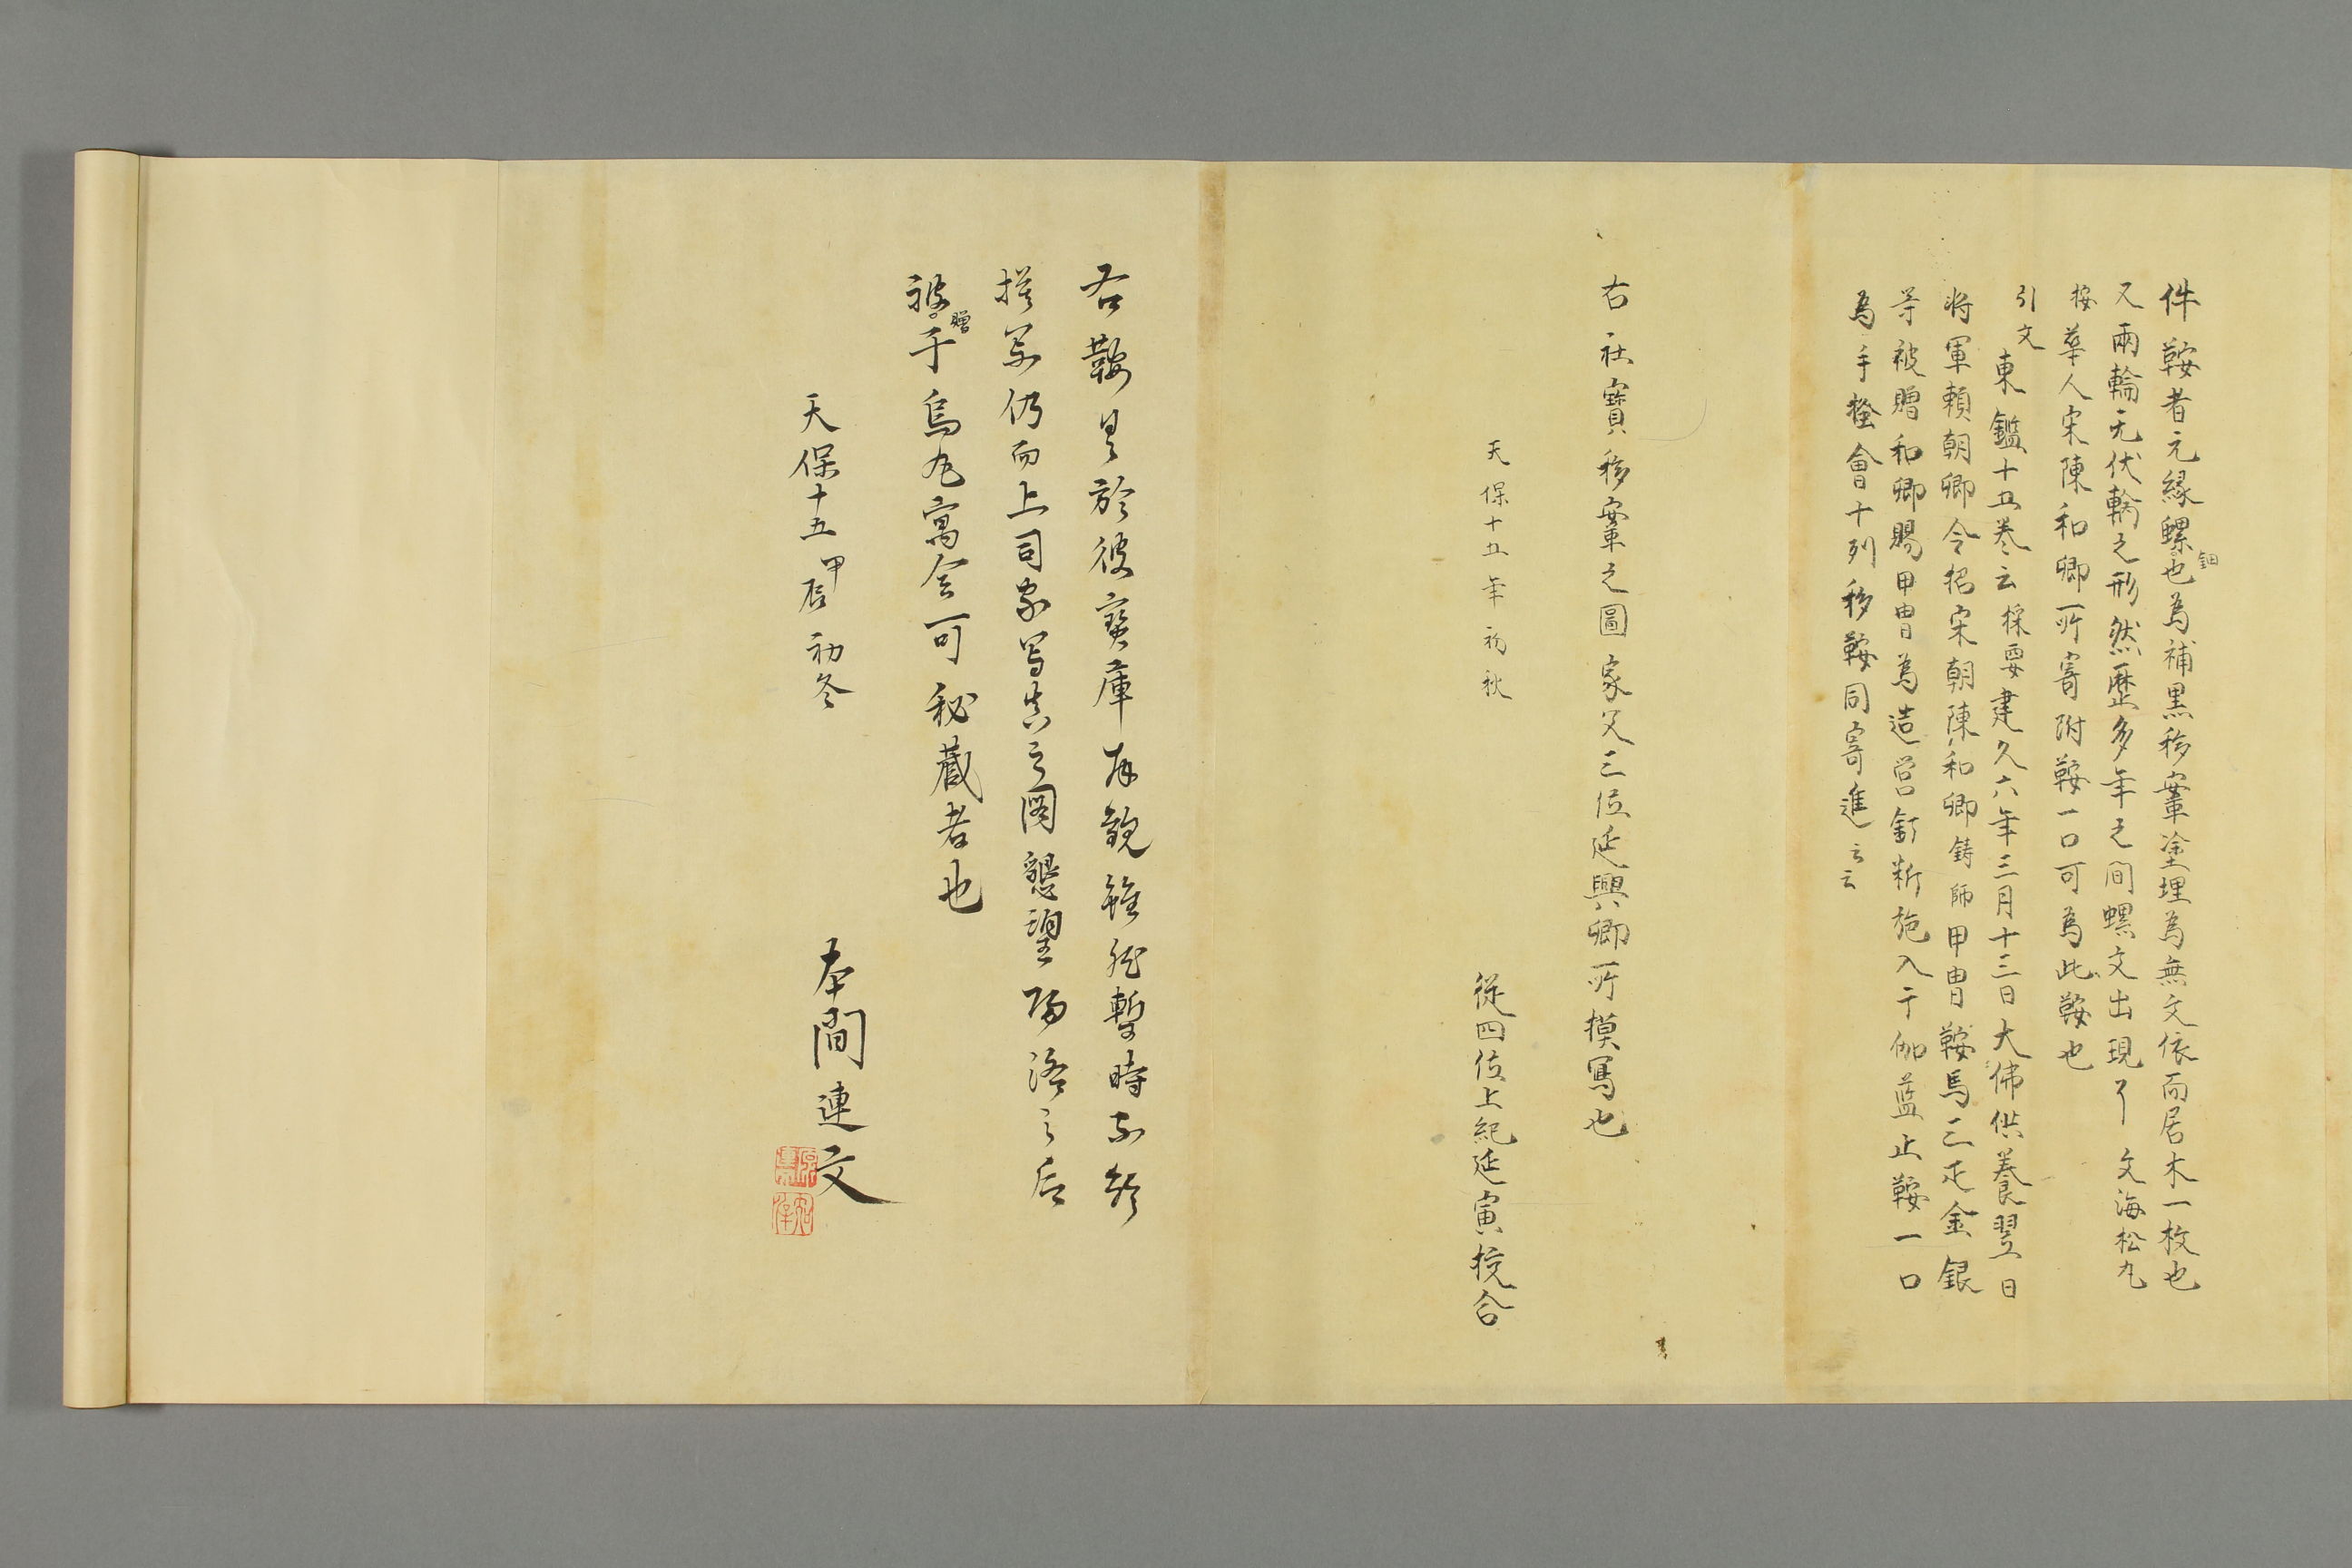 件鞍者元縁螺鈿也為補黒移鞌塗埋為無文依而居木一枚也
又兩輪无伏輪之形然歴多年之間螺文出現了 文海松丸
按華人宋陳和卿所寄附鞍一口可為此鞍也
引文
東鑑十五巻云採要建久六年三月十三日大佛供養翌日
将軍頼朝卿令招宋朝陳和卿鋳師甲冑鞍馬三疋金銀
等被贈和卿賜甲冑為造営釘断施入于伽藍止鞍一口
為手掻會十列移鞍同寄進云云
右社寳移鞌之圖家父三位延興卿所摸寫也
天保十五年初秋
從四位上紀延寅挍合
右鞍是於彼寳庫拝観雖然暫時不能
摸写仍而上司家写真之図懇望帰洛之后
被贈于烏丸寓舎可秘蔵者也
天保十五甲辰初冬
本間連文